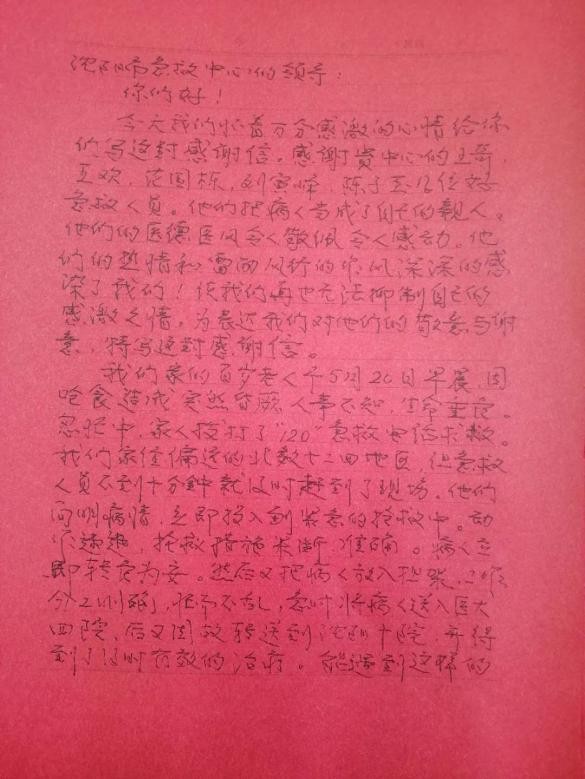 沈阳市急救中心的领导：
你们好！
今天我们怀着万分感激的心情给你
们写这封感谢信。感谢贵中心的王奇，
王欢，范国栋，刘寅峰，陈子玉几位好
急救人员。他们把病人当成了自己的亲人。
他们的医德医风令人敬佩令人感动。他
们的热情和雷励风行的作风深深的感
染了我们！使我们再也无法抑制自己的
感激之情。为表达我们对他们的敬意与谢
意，特写这封感谢信。
我们家的百岁老人于5月26日早晨，因
呛食造成突然昏厥，人事不知，生命垂危。
忽忙中，家人拨打了"120"急救电话求救。
我们家住偏远的北数十二四地区，但急救
人员不到十分钟就及时赶到了现场。他们
问明病情，立即投入到紧急的抢救中。动
作迅速，抢救措施果断，准确。病人立
即转危为安。然后又把病人放入担架，
分工明确，忙而不乱，急时将病人送入医大
四院，后又因故转送到沈阳十院，并得
到了及时有效的治疗。能遇到这样的